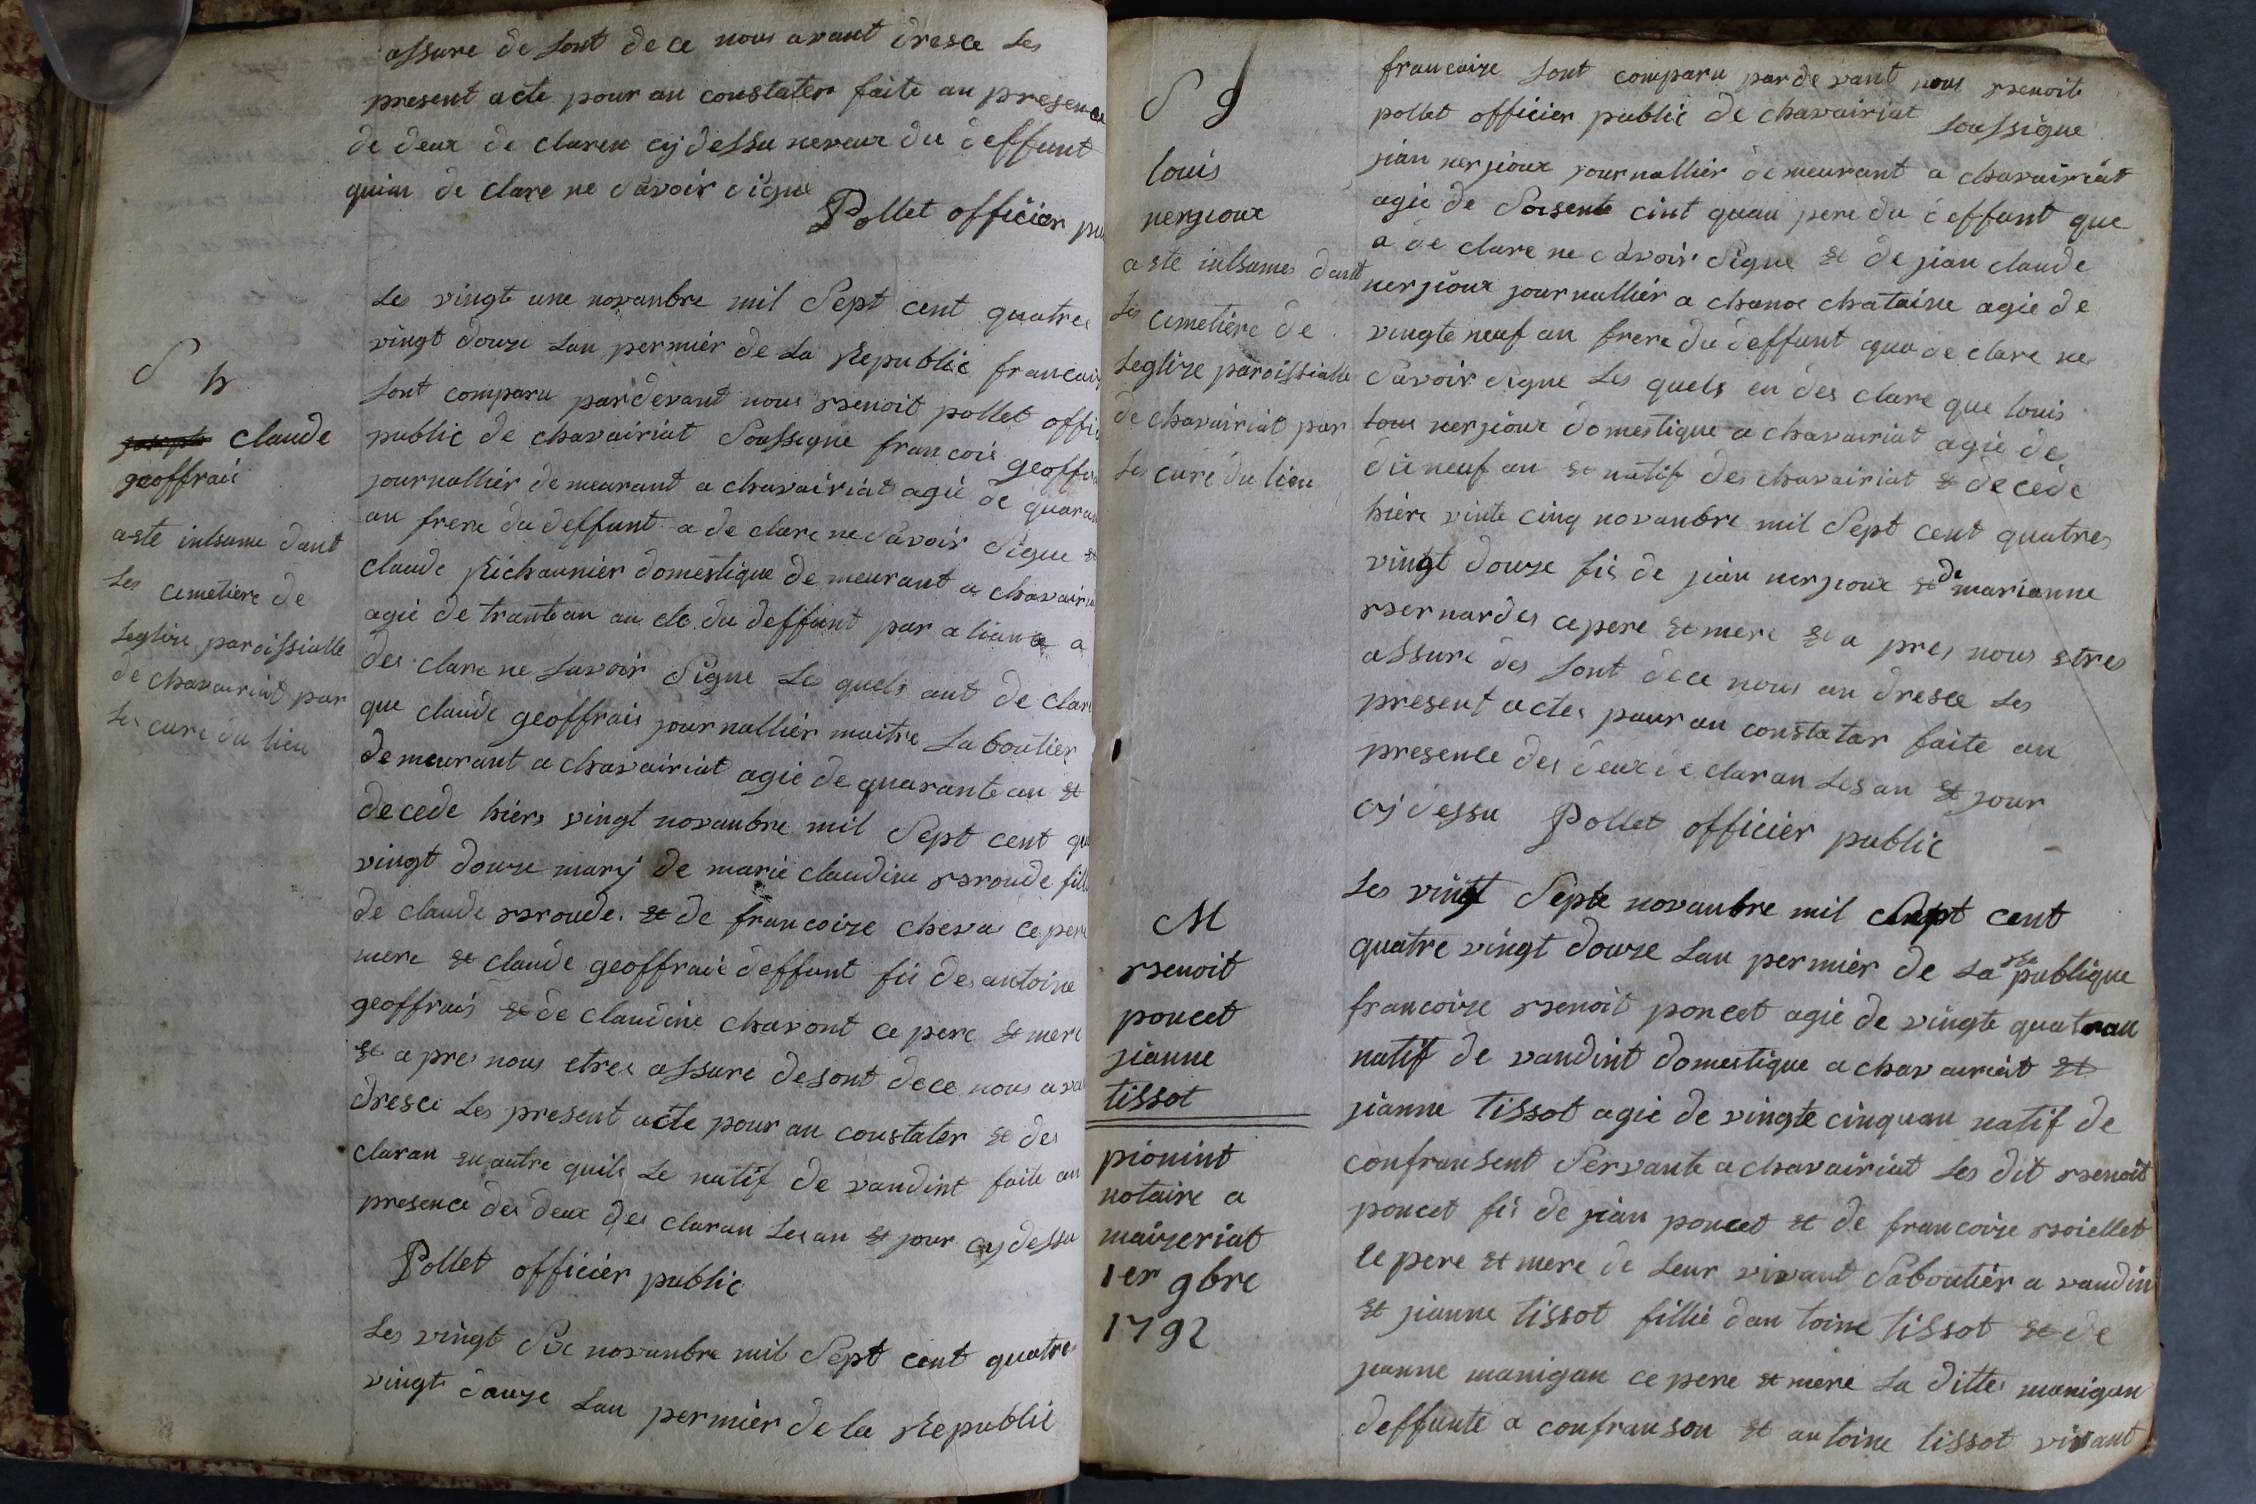 assure de sont de ce nous avant dresce les
present acte pour an constater faite an presence
de deux de claren cy dessu neveux du deffunt
quin de clare ne savoir signe
Pollet officier pu
S h
claude
geoffrai
a ste inhume dant
les cimetiere de
leglize paroissialle
de chavairiat par
les cure du lieu
Les vingte une novanbre mil Sept cent quatres
vingt douze lan permier de La Republic francais
sont comparu pardevant nous Benoit pollet offi
public de chavairiat Soussigne francois geoffra
journallier demeurant a chavairiat agie de quaran
an frere du deffunt a de clare ne savoir signe et
claude Richaunier domestique de meurant a chavairia
agie de trante an au cle du deffunt par aliance a
des clare ne savoir signe Les quels ant de clar
que claude geoffrais journallier maitre Laboutier
demeurant a chavairiat agie de quarante an et
decede hiers vingt novanbre mil Sept cent qua
vingt douze mary de marie claudine Broude fill
de claude Broude et de francoize cheva ce pere
mere et claude geoffraie deffunt fis des antoine
geoffrais et de claudine chavont ce pere et mere
et a pres nous etres assure de sont de ce nous ava
dresce Les present acte pour an constater et des
claran en autre quils Le natif de vandint faite an
presence des deux des claran Les an et jour cy dessu
Pollet officier public
Les vingt Six novanbre mil Sept cent quatres
vingt douze Lan permier de la Republic
S g
louis
nerjoux
a ste inhumes dant
Les cimetiere de
Leglize paroissialle
de chavairiat par
Les cure du lieu
francaize sont comparu par de vant nous Benoit
pollet officier public de chavairiat soussigne
jian nerjioux journallier demeurant a chavairiat
agie de Soisente cint quan pere du deffunt que
a de clare ne savoir signe et de jian claude
nerjioux journallier a chanox chataine agie de
vingte neuf an frere du deffunt qua de clare ne
savoir signe Les quels en des clare que louis
nerjioux domestique a chavairiat agie de
dix neuf an et natif des chavairiat et decede
hiere vinte cinq novanbre mil Sept cent quatres
vingt douze fis de jian nerjioux et de marianne
Bernardes ce pere et mere et a pres nous etres
assure des sont de ce nous an dresce Les
present actes pour an constatar faite an
presence des deux de claran Les an et jour
cy dessu Pollet officier public
M
Benoit
poncet
jianne
tissot
pionint
notaire a
maizeriat
1er 9bre
1792
Les vingt Septe novanbre mil Sept cent
quatre vingt douze Lan permier de La Republique
francoize Benoit poncet agie de vingte quatr an
natif de vandint domestique a chavairiat et
jianne tissot agie de vingte cinquan natif de
confransent Servante a chavairiat Les dit Benoit
poncet fis de jian poncet et de francoize Boiellet
ce pere et mere de Leur vivant Laboutier a vandin
et jianne tissot fillie dan toine tissot et de
janne manigan ce pere et mere La dittes manigan
deffunte a confranson et antoine tissot vivant